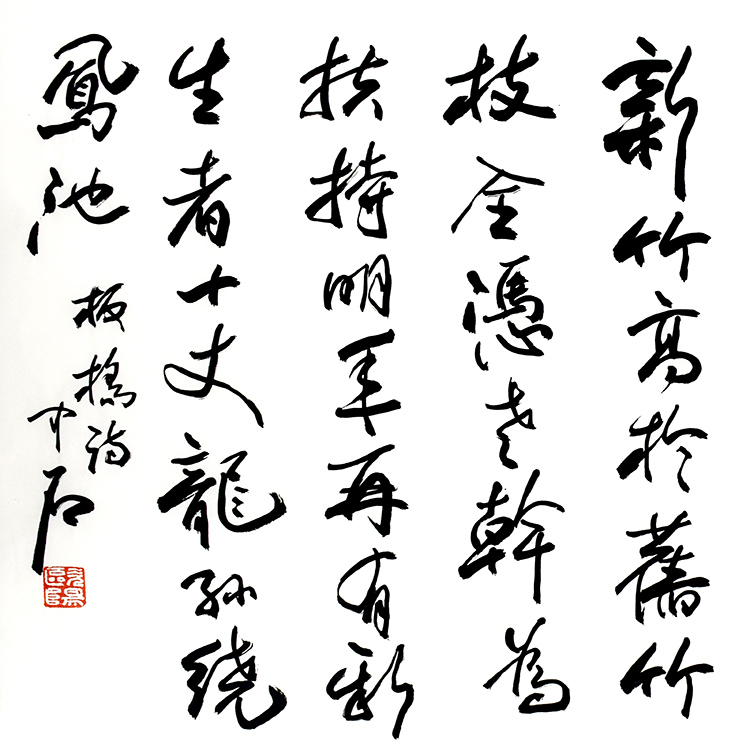 新竹高於舊竹
枝全憑老幹為
扶持明年再有新
生者十丈龍孫繞
鳳池
板橋詩
中石